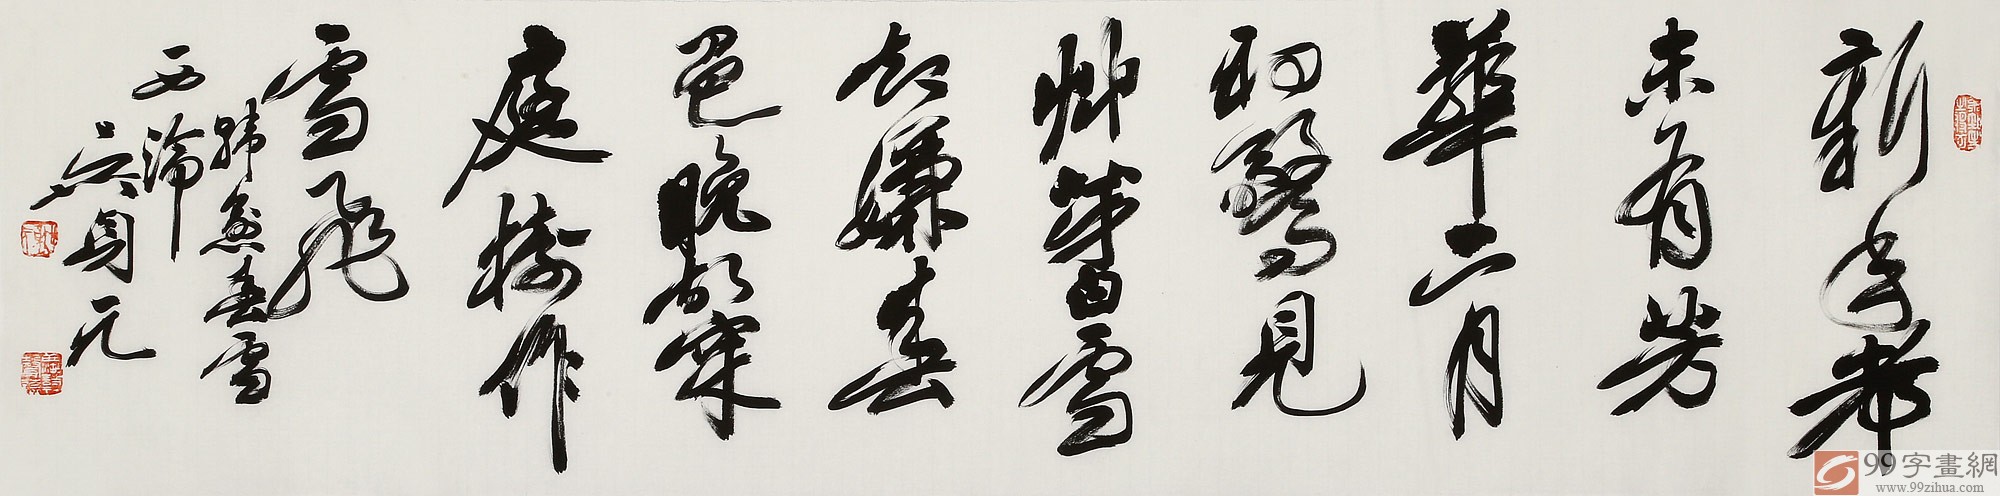 新年都
未有芳
華二月
初驚見
艸芽白雪
却嫌春
色晚故穿
庭樹作
雪飛
韓愈春雪
西泠
吳身元
99字畫網
www.99zihua.com